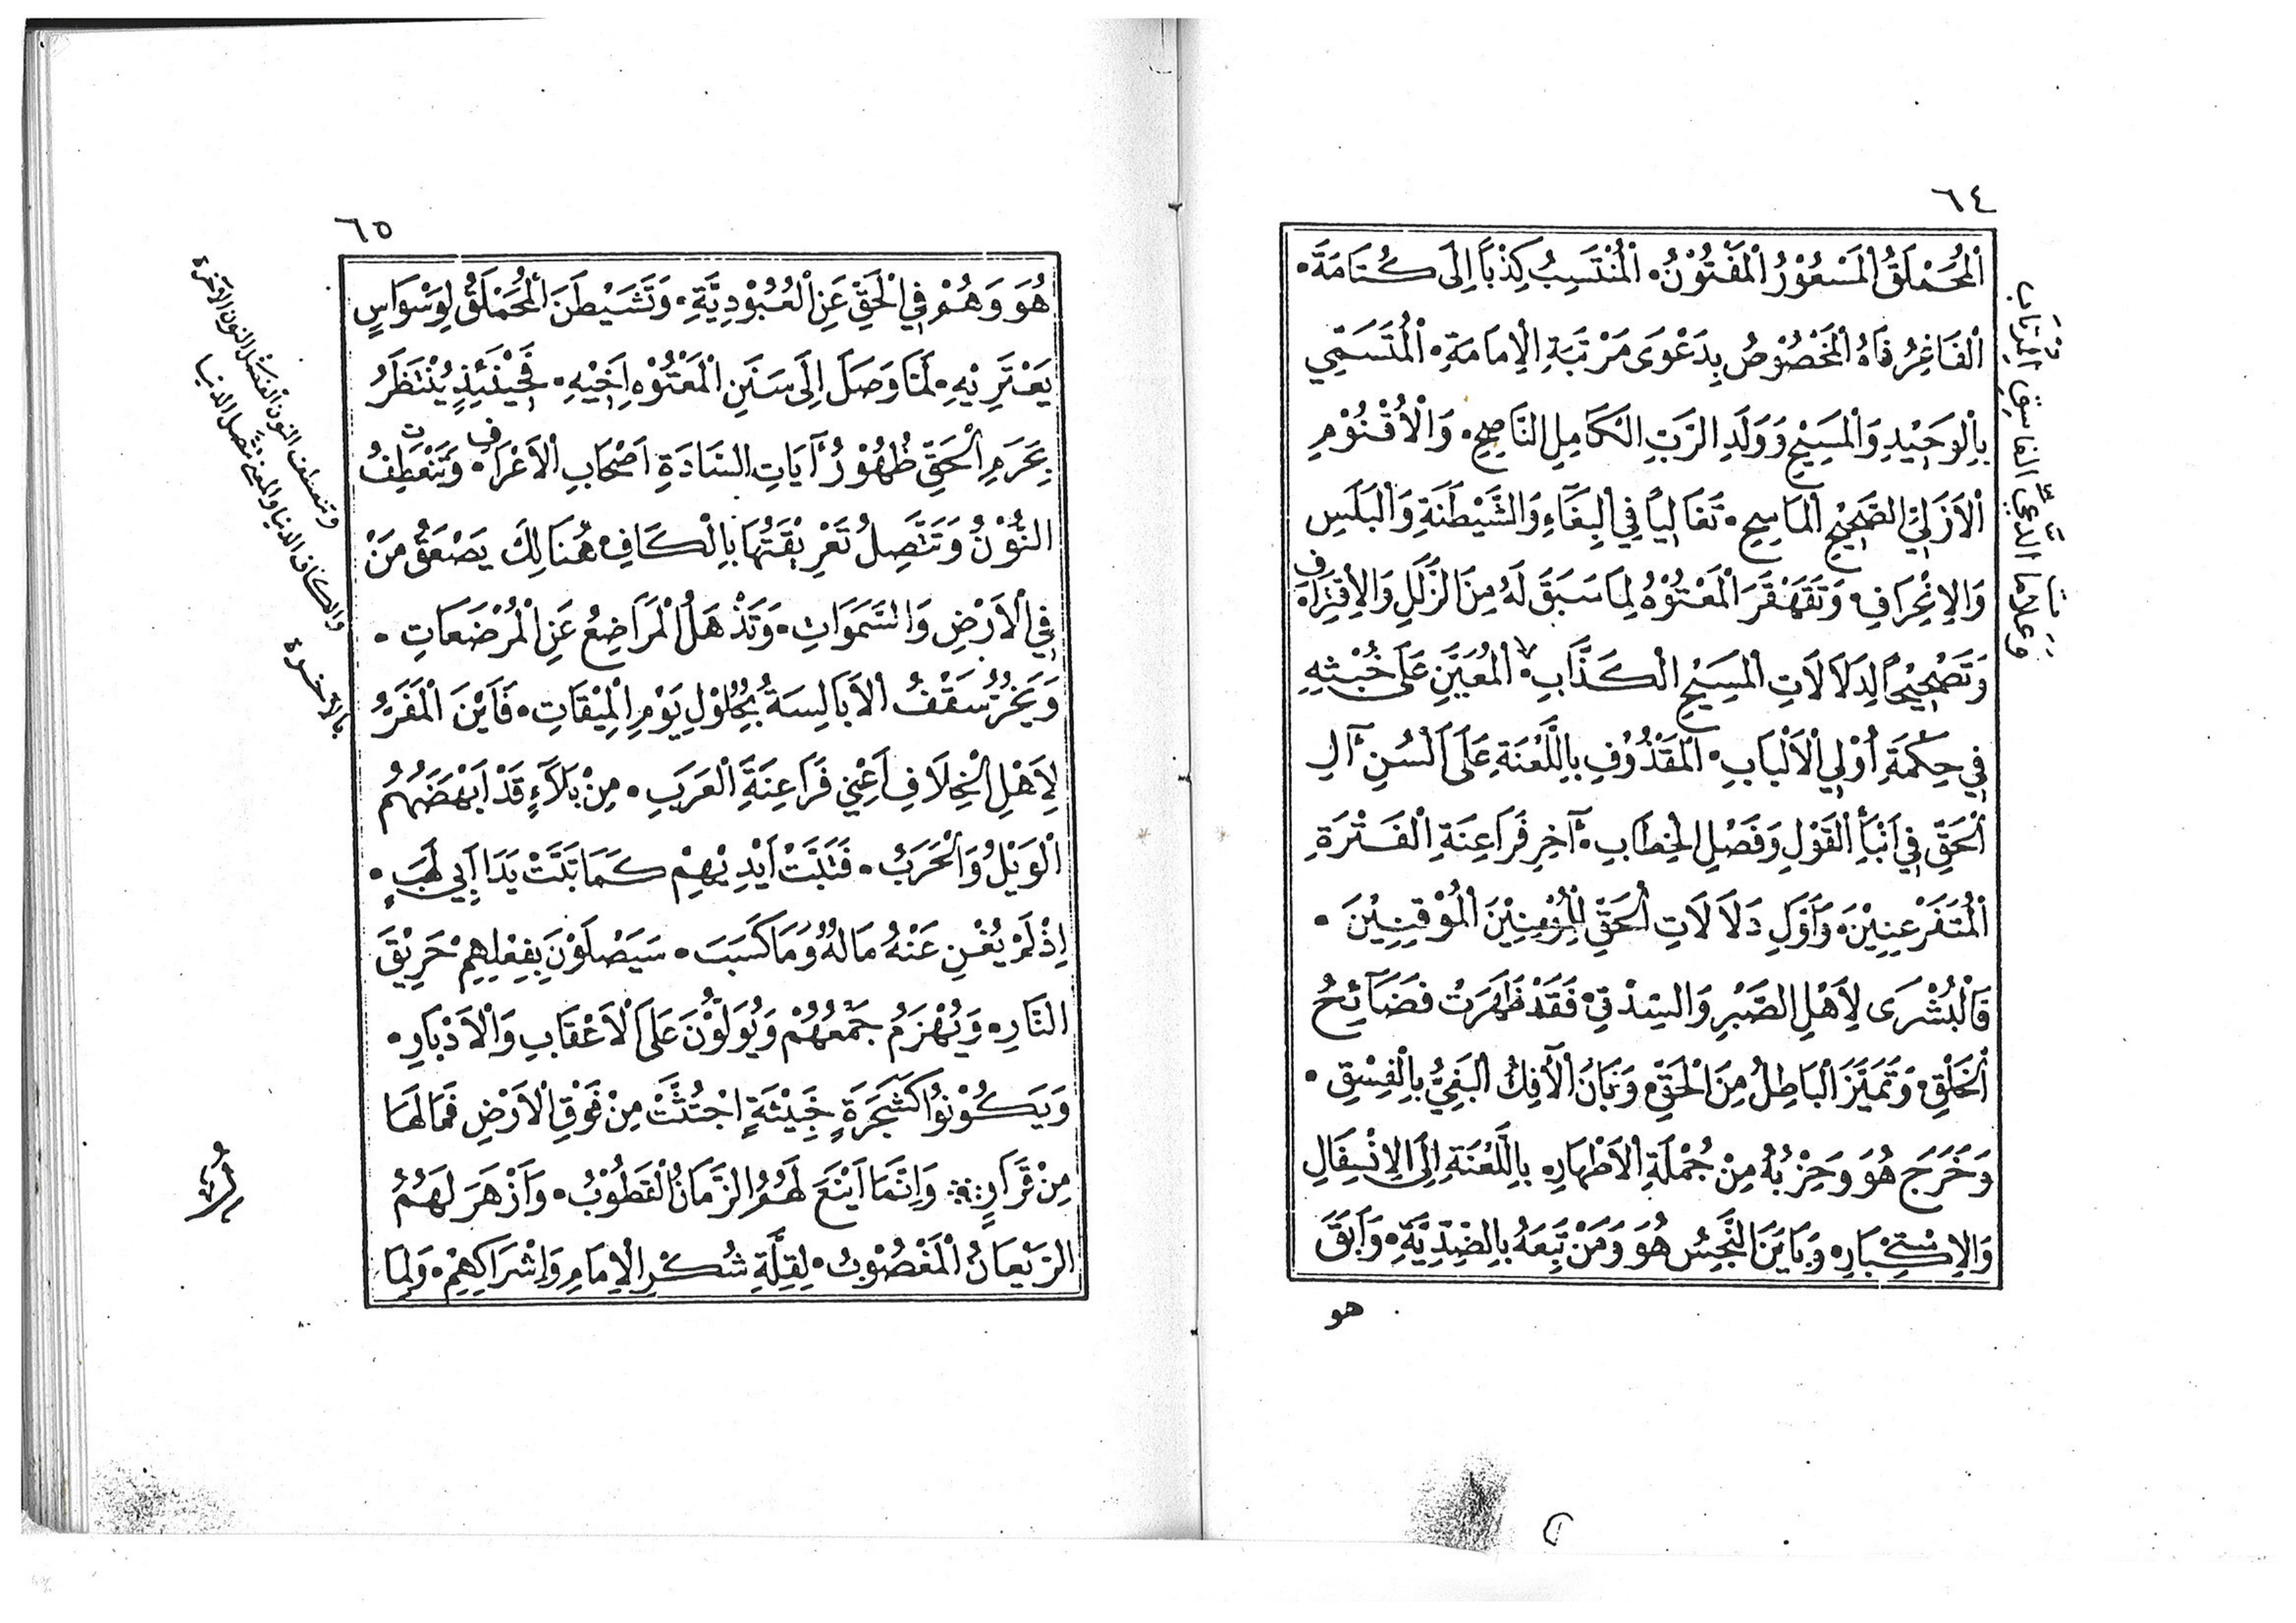 ٦٤
اَلْمُحَمْلَقُ الْمَسْعُوْرُ الْمَفْتُوْنُ۰ اَلْمُنْتَسِبُ كِذْبًا اِلَى كُتَامَةَ۰
اَلْفَاغِرُ فَاهُ الْمَخْصُوْصُ بِدَعْوَى مَرْتَبَةِ الْاِمَامَةِ۰ اَلْمُتَسَمِّي
بِالْوَحِيْدِ وَالْمَسِيْحِ وَوَلَدِ الرَّبِّ الْكَامِلِ النَّاصِحِ۰ وَالْاُقْنُوْمِ
الْاَزَلِيِّ الصَّحِيْحِ الْمَاسِحِ۰ تَغَالِيًا فِي الْبِغَآءِ وَالشَّيْطَنَةِ وَالْبَلَسِ
وَالْاِنْحِرَافِ۰ وَتَقَهْقَرَ الْمَعْتُوْهُ لِمَا سَبَقَ لَهُ مِنَ الزَّلَلِ وَالْاِقْتِرَافِ۰
وَتَصْحِيْحًا لِدَلَالَاتِ الْمَسِيْحِ الْكَذَّابِ۰ اَلْمُعَيَّنِ عَلَى خُبْثِهِ
فِي حِكْمَةِ اُوْلِي الْاَلْبَابِ۰ اَلْمَقْذُوْفِ بِاللَّعْنَةِ عَلَى اَلْسُنِ آلِ
الْحَقِّ فِي اَنْبَأِ الْقَوْلِ وَفَصْلِ الْخِطَابِ۰ آخِرِ فَرَاعِنَةِ الْفَتْرَةِ
الْمُتَفَرْعِنِيْنَ۰ وَاَوَّلِ دَلَالَاتِ الْحَقِّ لِلْمُؤْمِنِيْنَ الْمُوْقِنِيْنَ۰
فَالْبُشْرَى لِاَهْلِ الصَّبْرِ وَالسِّدْقِ۰ فَقَدْ ظَهَرَتْ فَضَآئِحُ
الْخَلْقِ۰ وَتَمَيَّزَ الْبَاطِلُ مِنَ الْحَقِّ۰ وَبَانَ الْآفِكُ الْبَغِيُّ بِالْفِسْقِ۰
وَخَرَجَ هُوَ وَحِزْبُهُ مِنْ جُمْلَةِ الْاَطْهَارِ۰ بِاللَّعْنَةِ اِلَى الْاِنْسِفَالِ
وَالْاِسْتِكْبَارِ۰ وَبَايَنَ النَّجِسُ هُوَ وَمَنْ تَبِعَهُ بِالضِّدِّيَّةِ۰ وَاَبَقَ
هو
الفاسق
٦٥
هُوَ وَهُمْ فِي الْحَقِّ عَنِ الْعُبُوْدِيَّةِ۰ وَتَشَيْطَنَ الْمُحَمْلَقُ لِوَسْوَاسٍ
يَعْتَرِيْهِ۰ لَمَّا وَصَلَ اِلَى سَنَنِ الْمَعْتُوْهِ اَخِيْهِ۰ فَحِيْنَئِذٍ يُنْتَظَرُ
بِحَرَمِ الْحَقِّ ظُهُوْرُ آيَاتِ السَّادَةِ اَصْحَابِ الْاَعْرَافِ۰ وَتَنْعَطِفُ
النُّوْنُ وَتَتَّصِلُ تَعْرِيْقَتُهَا بِالْكَافِ۰ هُنَالِكَ يَصْعَقُ مَنْ
فِي الْاَرْضِ وَالسَّمَوَاتِ۰ وَتَذْهَلُ الْمَرَاضِعُ عَنِ الْمُرْضَعَاتِ۰
وَيَخِرُّ سَقْفُ الْاَبَالِسَةُ بِحُلُوْلِ يَوْمِ الْمِيْقَاتِ۰ فَاَيْنَ الْمَفَرُّ
لِاَهْلِ الْخِلَافِ اَعْنِي فَرَاعِنَةَ الْعَرَبِ۰ مِنْ بَلَآءٍ قَدْ اَبْهَضَهُمُ
الْوَيْلُ وَالْحَرَبُ۰ فَتَبَّتْ اَيْدِيْهِمْ كَمَا تَبَّتْ يَدَا اَبِي لَهَبٍ۰
اِذْ لَمْ يُغْنِ عَنْهُ مَالُهُ وَمَا كَسَبَ۰ سَيَصْلَوْنَ بِفِعْلِهِمْ حَرِيْقَ
النَّارِ۰ وَيُهْزَمُ جَمْعُهُمْ وَيُوَلُّوْنَ عَلَى الْاَعْقَابِ وَالْاَدْبَارِ۰
وَيَكُوْنُوْا كَشَجَرَةٍ خَبِيْثَةٍ اجْتُثَّتْ مِنْ فَوْقِ الْاَرْضِ فَمَا لَهَا
مِنْ قَرَارٍ ۰ وَاِنَّمَا اَيْنَعَ لَهُمُ الزَّمَانُ الْقَطُوْبُ۰ وَاَزْهَرَ لَهُمُ
الرَّيْعَانُ الْمَغْصُوْبُ۰ لِقِلَّةِ شُكْرِ الْاِمَامِ وَاِشْرَاكِهِمْ۰ وَلِمَا
وتنعطف النون لتصل النون الآخرة
والكاف الدنيا والمعنى تتصل الدنيا
بالآخرة